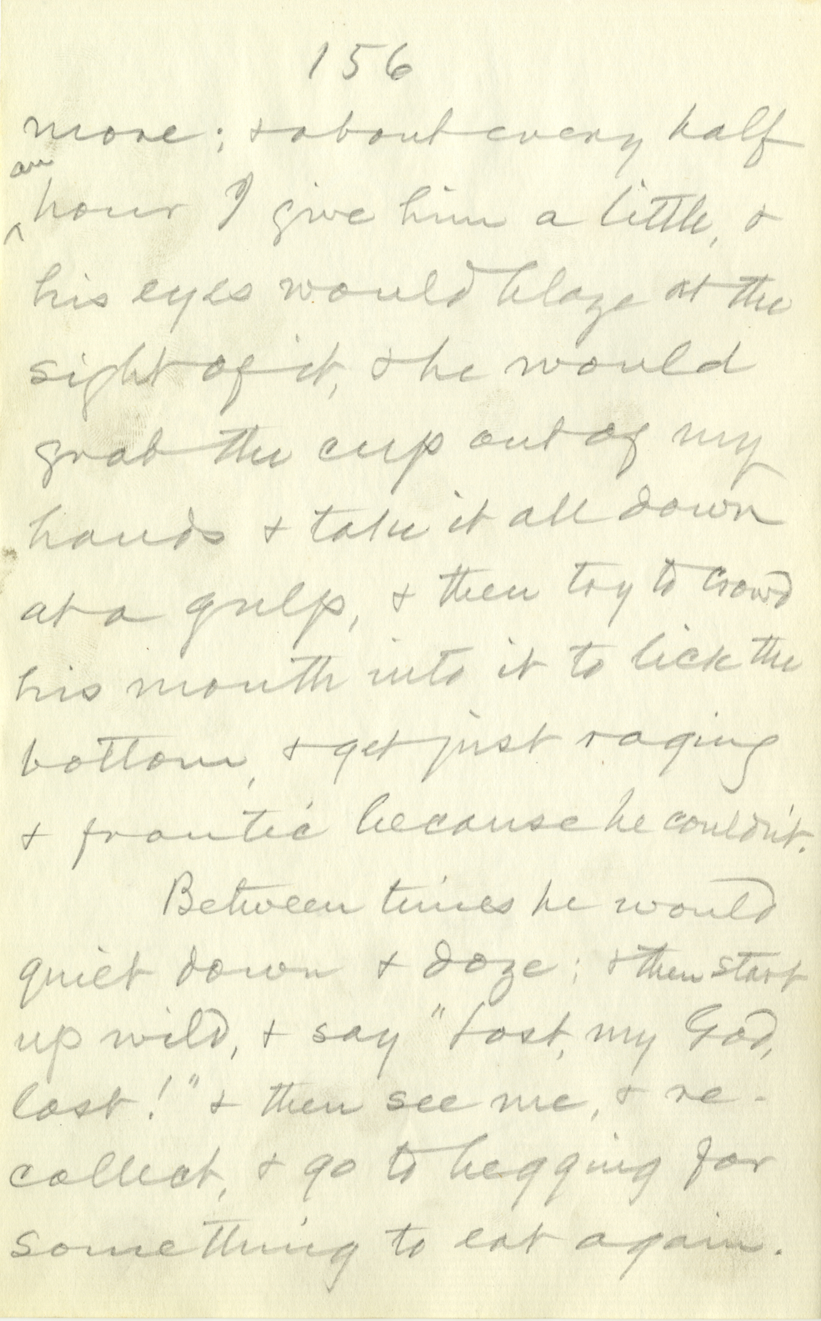 156
more; & about every half
an
hour I give him a little, &
his eyes would blaze at the
sight of it, & he would
grab the cup out of my
hands & take it all down
at a gulp, & then try to crowd
his mouth into it to lick the
bottom, & get just raging
& frantic because he couldn't.
Between times he would
quiet down & doze; & then start
up wild, & say "Lost, my God,
lost!" & then see me, & re-
collect, & go to begging for
something to eat again.